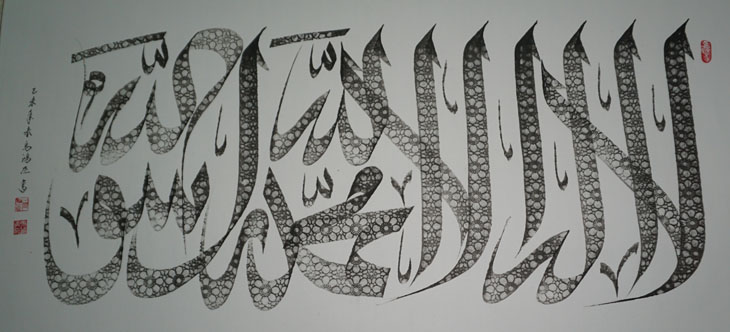 لا اله الا الله محمد رسول الله
乙未年 書